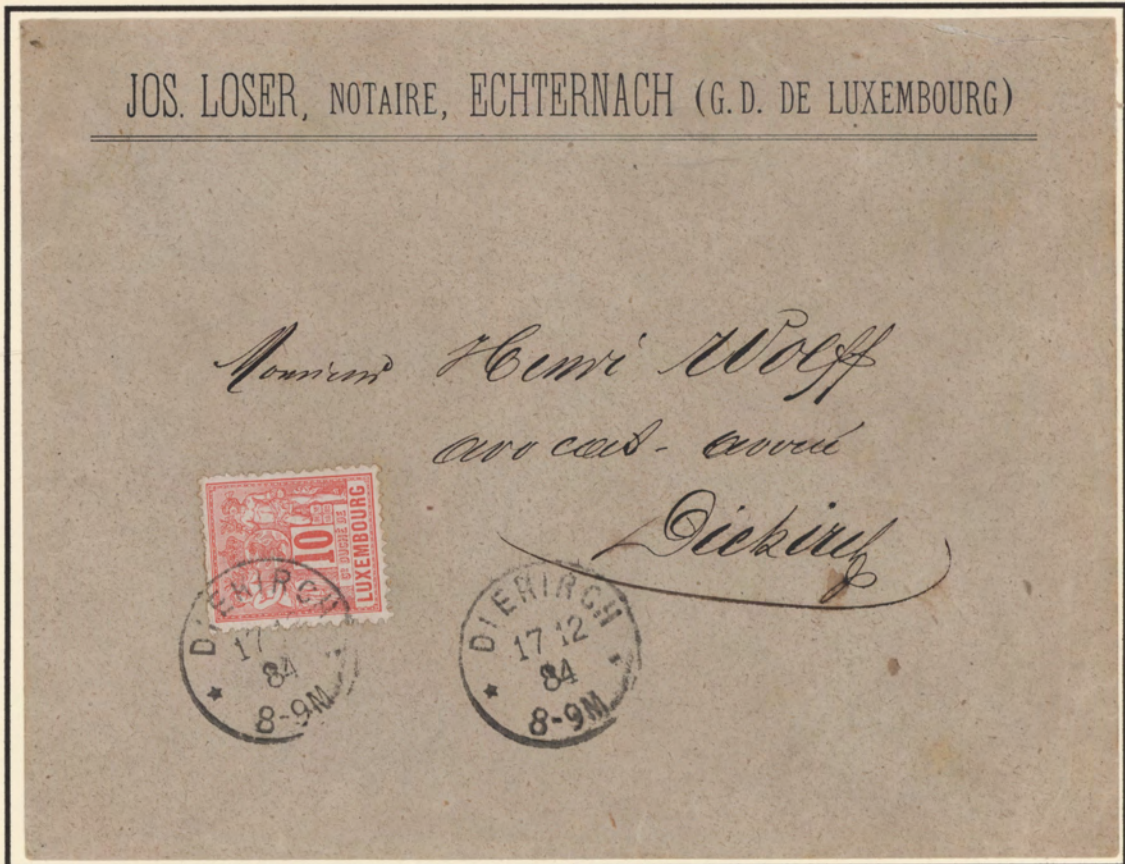 JOS. LOSER, NOTAIRE, ECHTERNACH (G. D. DE LUXEMBOURG)
Monsieur Henri Wolff
avocat-avoué
Diekirch
10
Gᴰ DUCHÉ DE
LUXEMBOURG
DIEKIRCH
17
84
8-9M
DIEKIRCH
17 12
84
8-9M